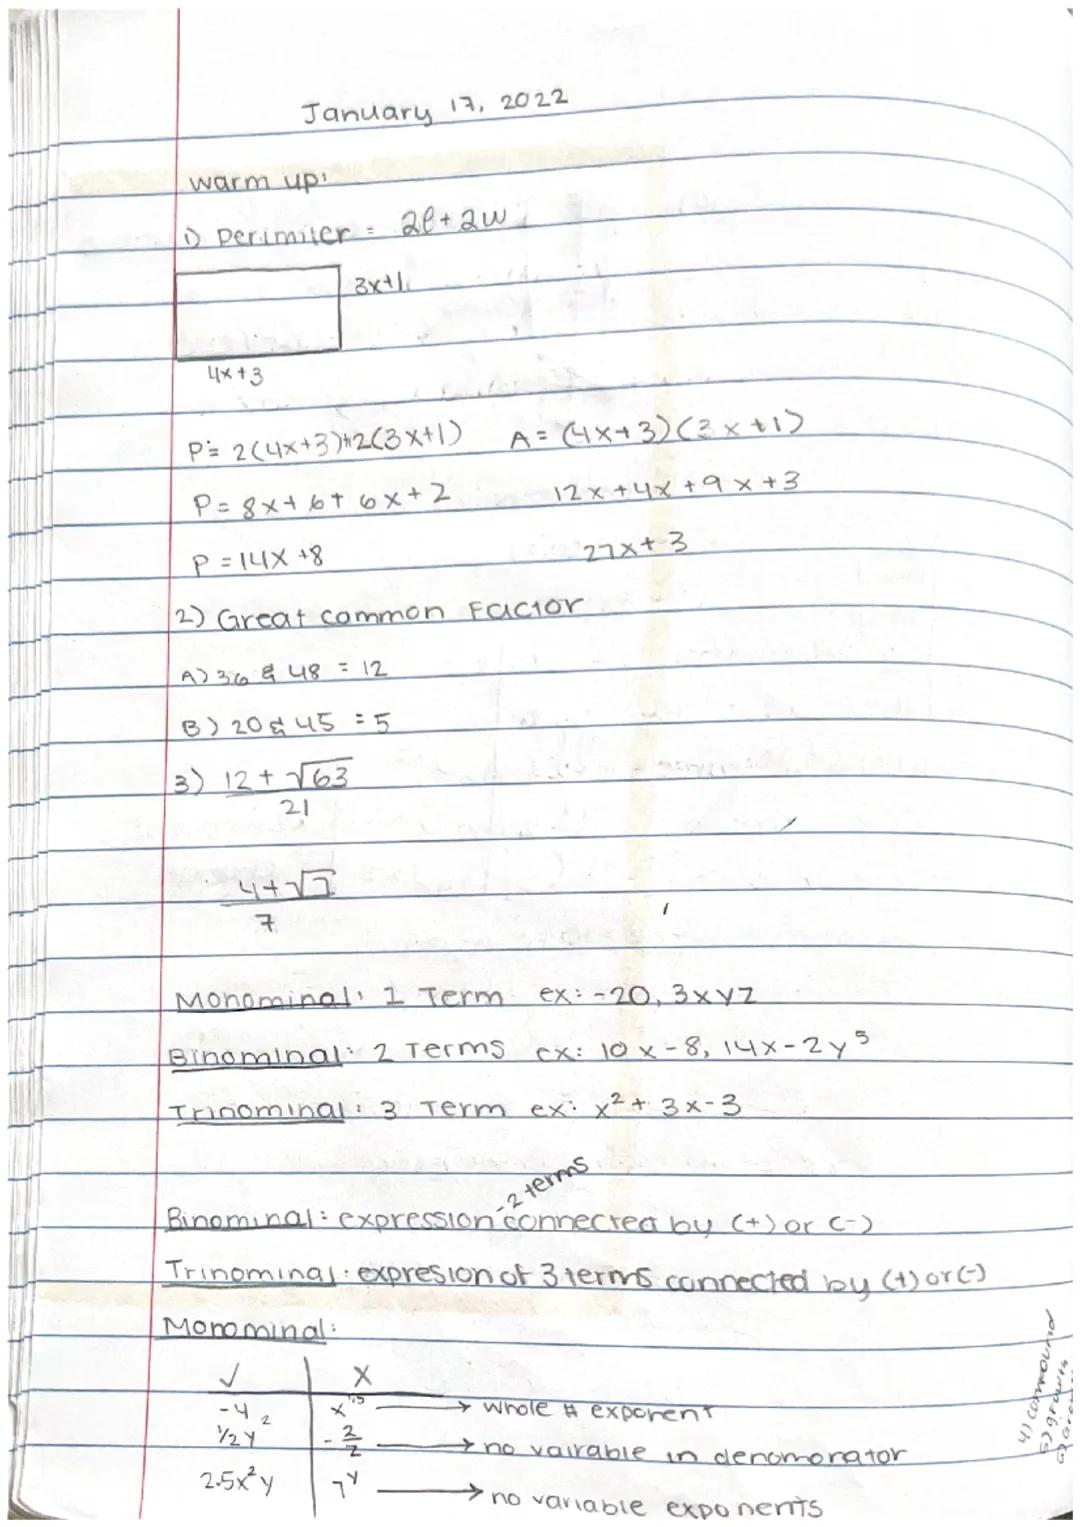 January 17, 2022
warm up:
1) Perimiter = 2l + 2w
3x+1
4x+3
P= 2(4x+3)+2(3x+1) A= (4x+3)(3x+1)
P= 8x+6+6x+2 12x+4x+9x+3
P=14x+8 27x+3
2) Great common Factor
A) 36 & 48 = 12
B) 20 & 45 = 5
3) 12+√63
21
4+√7
7
Monominal: 1 Term ex: -20, 3xyz
Binominal: 2 Terms ex: 10x-8, 14x-2y⁵
Trinominal: 3 Term ex: x²+3x-3
-2 terms
Binominal: expression connected by (+) or (-)
Trinominal: expresion of 3 terms connected by (+) or (-)
Monominal:
✓ X
-4 x¹·⁵ → whole # exponent
½y² -2/z → no vairable in denomonator
2.5x²y 7ʸ → no variable exponents
4) compound
5) growth